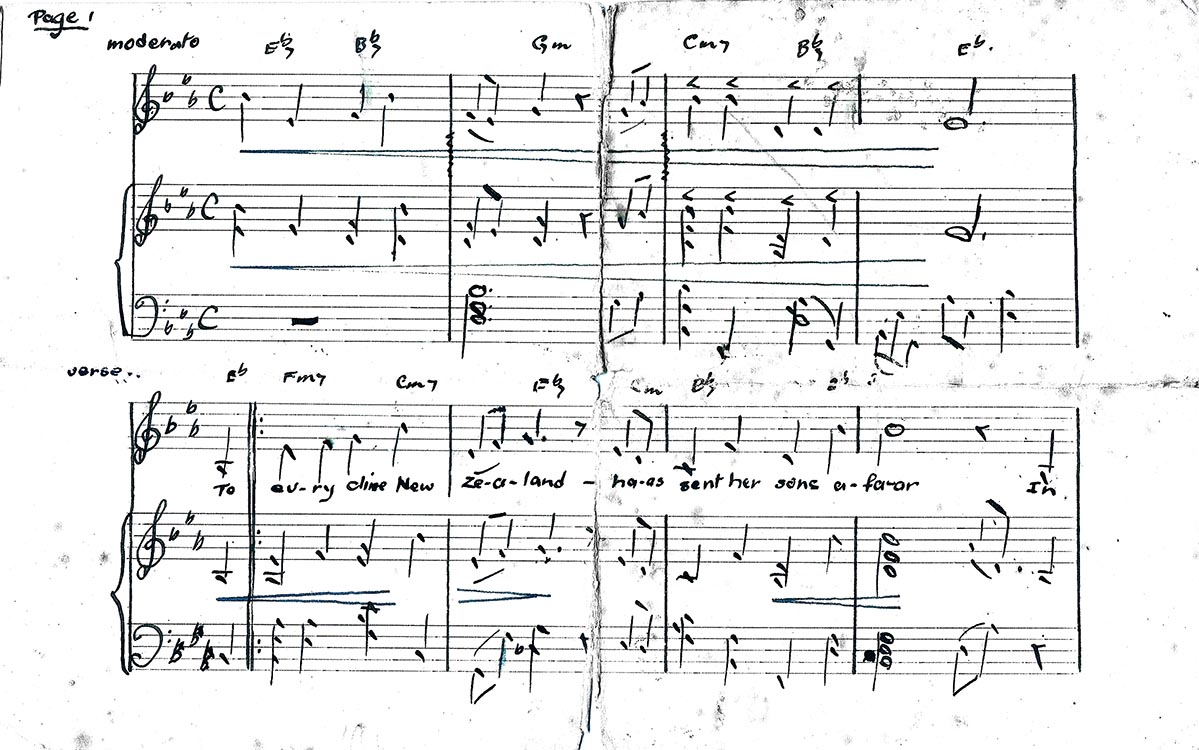 Page 1
moderato E♭7 B♭7 Gm Cm7 B♭7 E♭.
C
C
C
verse... E♭ Fm7 Cm7 E♭7 Cm B♭7
To ev-ry clime New Ze-a-land - ha-as sent her sons a-far-ar In